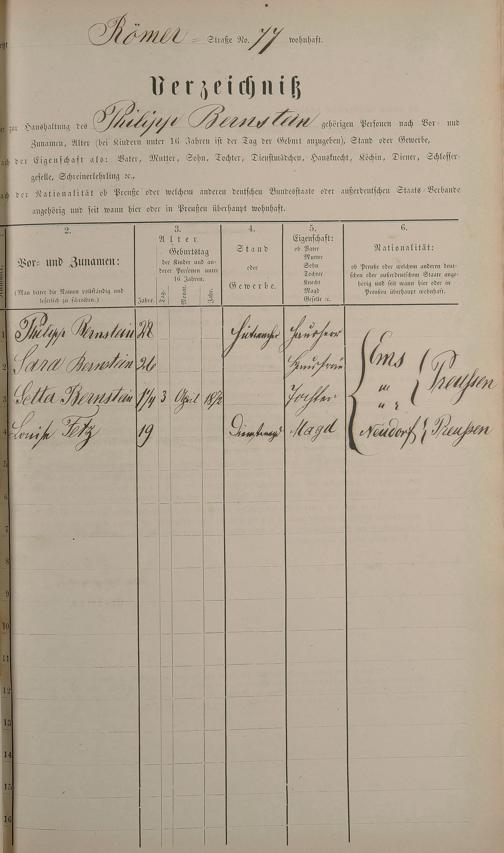 Römer - Straße No. 77 wohnhaft.
Verzeichniß
der zur Haushaltung des Philipp Bernstein gehörigen Personen nach Vor- und
Zunamen, Alter (bei Kindern unter 16 Jahren ist der Tag der Geburt anzugeben), Stand oder Gewerbe,
nach der Eigenschaft als: Vater, Mutter, Sohn, Tochter, Dienstmädchen, Hausknecht, Köchin, Diener, Schlosser-
geselle, Schreinerlehrling &c.,
nach der Nationalität ob Preuße oder welchem anderen deutschen Bundesstaate oder außerdeutschen Staats-Verbande
angehörig und seit wann hier oder in Preußen überhaupt wohnhaft.
2. 3. 4. 5. 6.
Vor- und Zunamen:
(Man bittet die Namen vollständig und
leserlich zu schreiben.)
Alter
Geburtstag
der Kinder und an-
derer Personen unter
16 Jahren.
Jahre. Tag. Monat. Jahr.
Stand
oder
Gewerbe.
Eigenschaft:
ob Vater
Mutter
Sohn
Tochter
Knecht
Magd
Geselle &c.
Nationalität:
ob Preuße oder welchem anderen deut-
schen oder außerdeutschen Staate ange-
hörig und seit wann hier oder in
Preußen überhaupt wohnhaft.
1 Philipp Bernstein 28 Hausherr Ems
2 Sara Bernstein 26 Hausfrau " Preussen
3 Setta Bernstein 1 3 April Tochter "
4 Louise Fetz 19 Dienstmagd Magd Neudorf Preussen
5
6
7
8
9
10
11
12
13
14
15
16